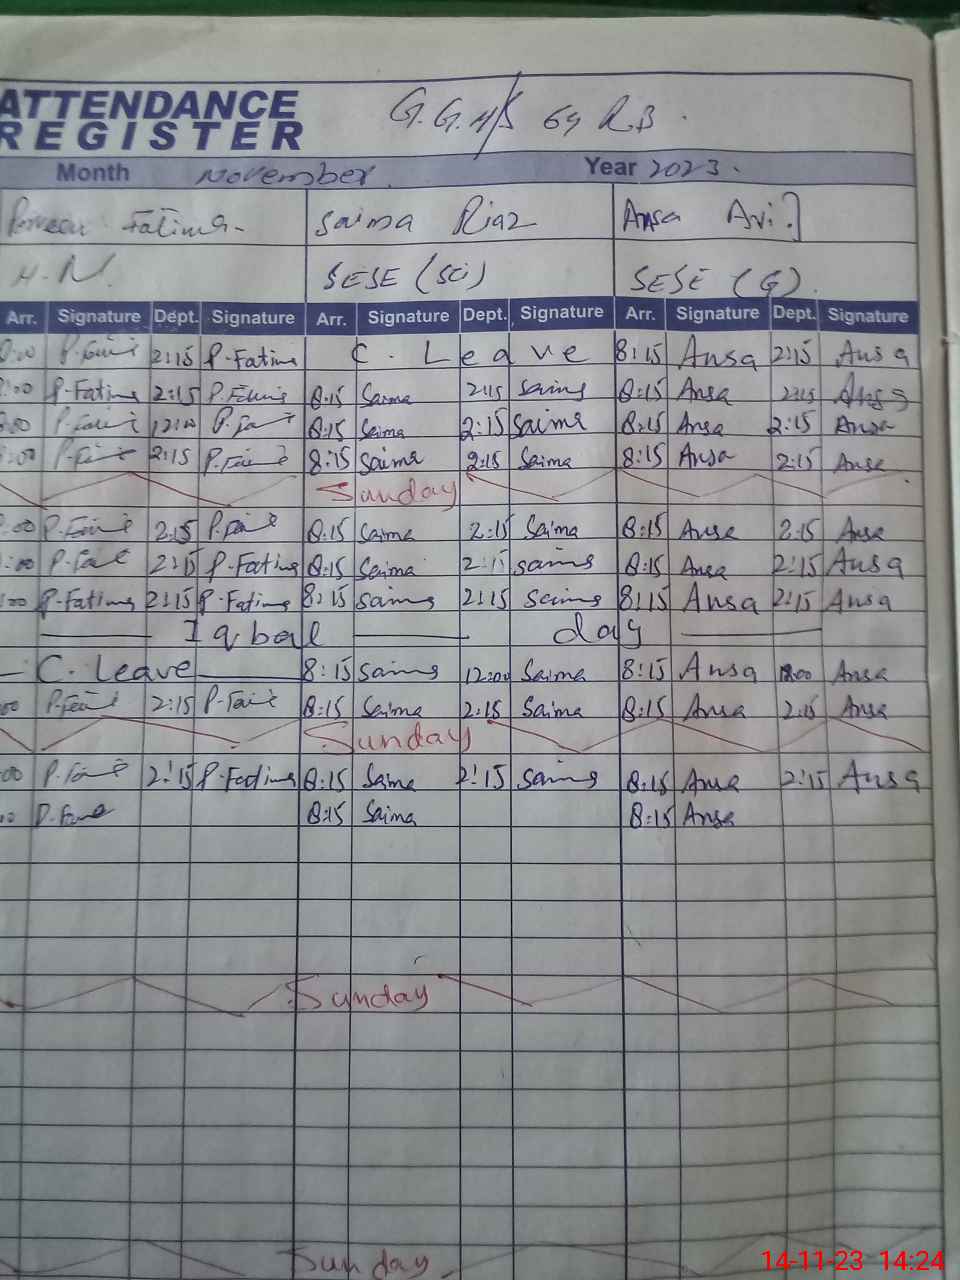 ATTENDANCE
REGISTER
G.G.H/S 69 R.B.
Month November. Year 2023.
Fatima Saima Riaz Ansa
H.M. SESE (Sci) SESE (G).
Arr. Signature Dept. Signature Arr. Signature Dept. Signature Arr. Signature Dept. Signature
2:15 P.Fatima C. Leave 8:15 Ansa 2:15 Ansa
:00 P-Fatima 2:15 8:15 Saima 2:15 Saima 8:15 Ansa 2:15 Ansa
:00 12:00 8:15 Saima 2:15 Saima 8:15 Ansa 2:15 Ansa
:00 2:15 8:15 Saima 2:15 Saima 8:15 Ansa 2:15 Ansa
Sunday
:00 2:15 8:15 Saima 2:15 Saima 8:15 Ansa 2:15 Ansa
:00 2:15 P-Fatima 8:15 Saima 2:15 Saima 8:15 Ansa 2:15 Ansa
:00 P-Fatima 2:15 P-Fatima 8:15 Saima 2:15 Saima 8:15 Ansa 2:15 Ansa
Iqbal day
C. Leave 8:15 Saima 12:00 Saima 8:15 Ansa 12:00 Ansa
00 2:15 8:15 Saima 2:15 Saima 8:15 Ansa 2:15 Ansa
Sunday
:00 2:15 P-Fatima 8:15 Saima 2:15 Saima 8:15 Ansa 2:15 Ansa
8:15 Saima 8:15 Ansa
Sunday
Sunday
14-11-23 14:24